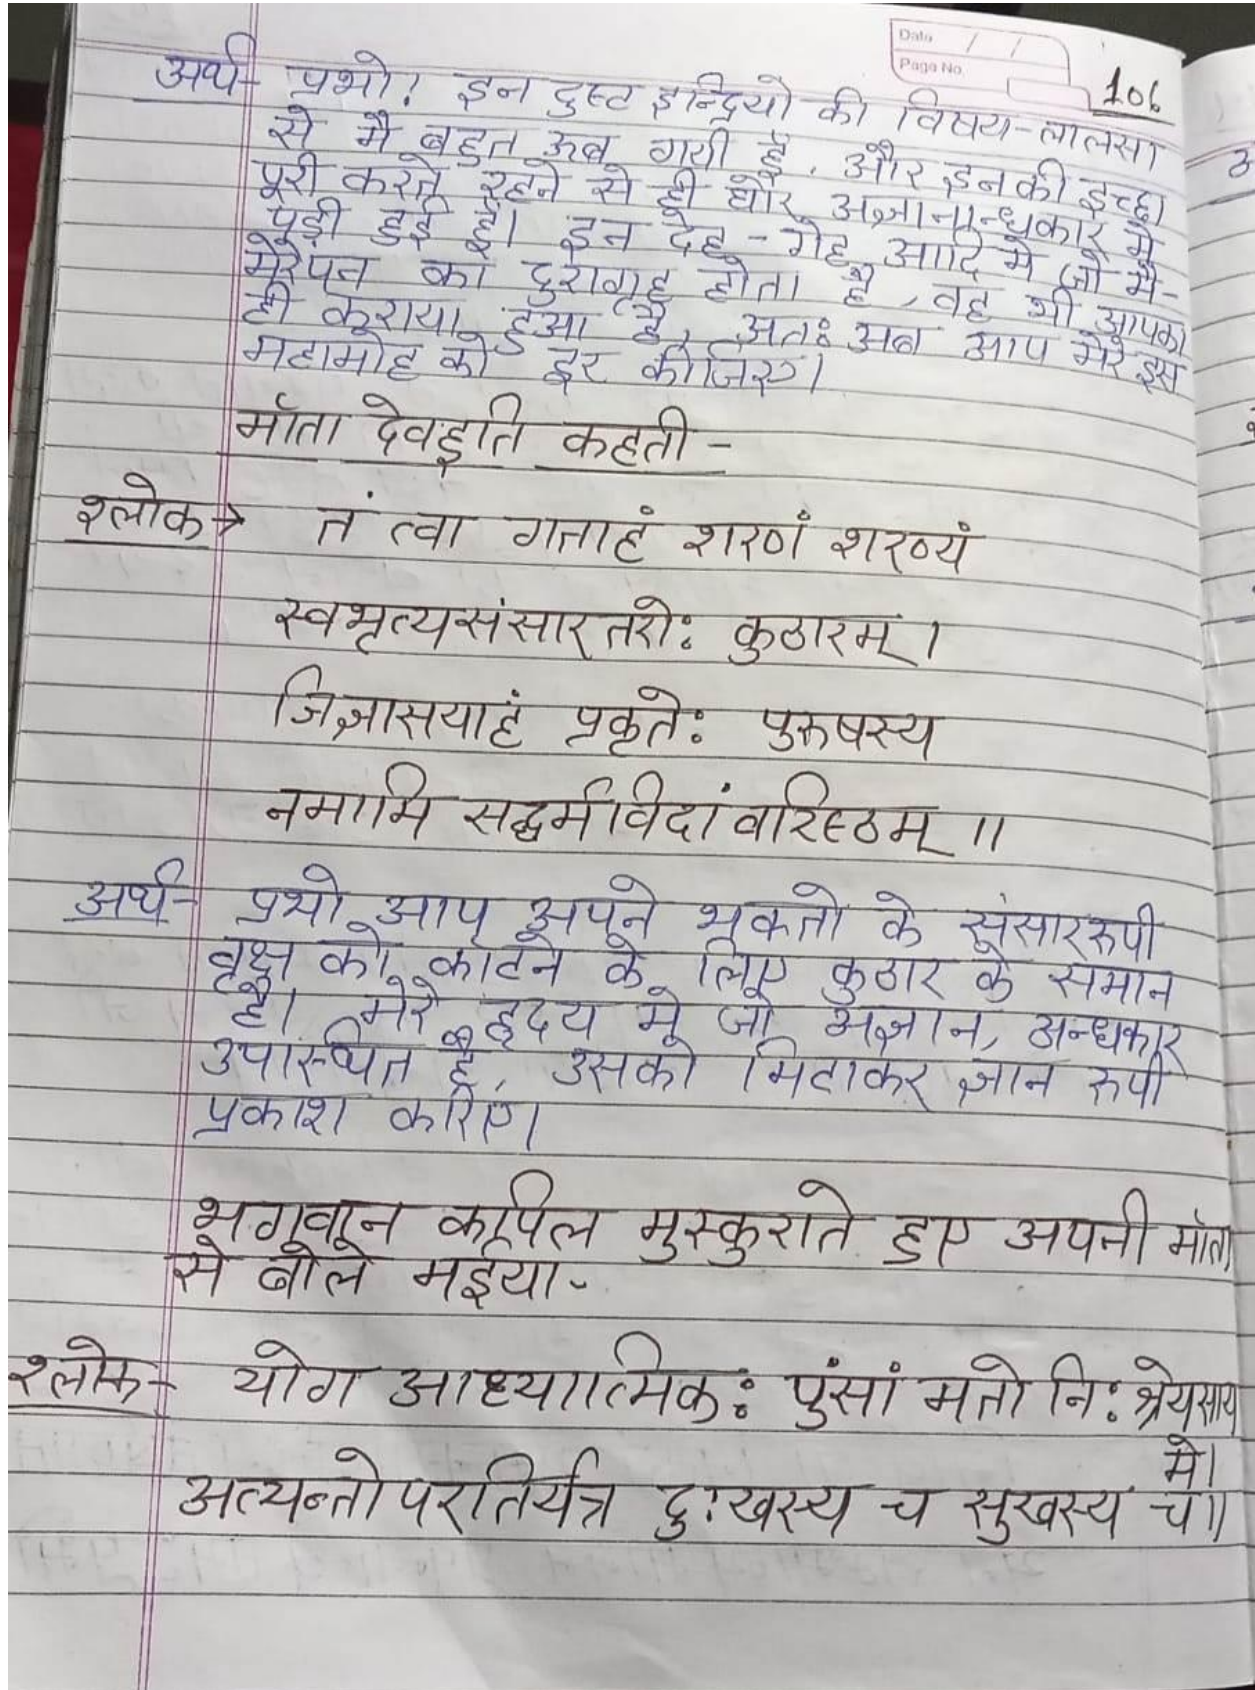 Date / /
Page No.
106
अर्थ- प्रभो! इन दुस्ट इन्द्रियो की विषय-लालसा
से मै बहुत ऊब गयी हूँ, और इनकी इच्छा
पूरी करते रहने से ही घोर अज्ञानान्धकार मे
पड़ी हुई हूँ। इन देह - गेह आदि मे जो मै-
मेरेपन का दुराग्रह होता है, वह भी आपका
ही कराया हुआ है, अतः अब आप मेरे इस
महामोह को दूर कीजिए।
मॉता देवहूति कहती -
श्लोक→ तं त्वा गताहं शरणं शरण्यं
स्वभृत्यसंसारतरोः कुठारम् ।
जिज्ञासयाहं प्रकृतेः पुरुषस्य
नमामि सद्धर्मविदां वरिस्ठम् ॥
अर्थ- प्रभो आप अपने भक्तो के संसाररुपी
वृक्ष को काटने के लिए कुठार के समान
है। मेरे हृदय मे जो अज्ञान, अन्धकार
उपास्थित है, उसको मिटाकर ज्ञान रुपी
प्रकाश करिए।
भगवान कपिल मुस्कुराते हुए अपनी मॉता
से बोले मइया-
श्लोक- योग आध्यात्मिकः पुंसां मतो निः श्रेयसाय
मे।
अत्यन्तोपरतिर्यत्र दुःखस्य च सुखस्य च॥